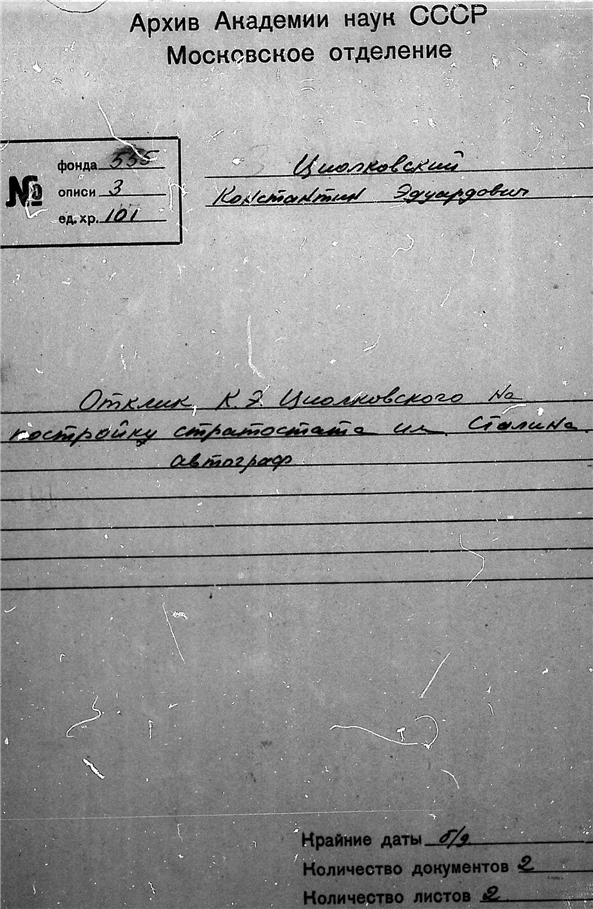 Архив Академии наук СССР
Московское отделение
№
фонда 555
описи 3
ед. хр. 101
Циолковский
Константин Эдуардович
Отклик К.Э. Циолковского на
постройку стратостата им. Сталина.
автограф
Крайние даты б/д
Количество документов 2
Количество листов 2